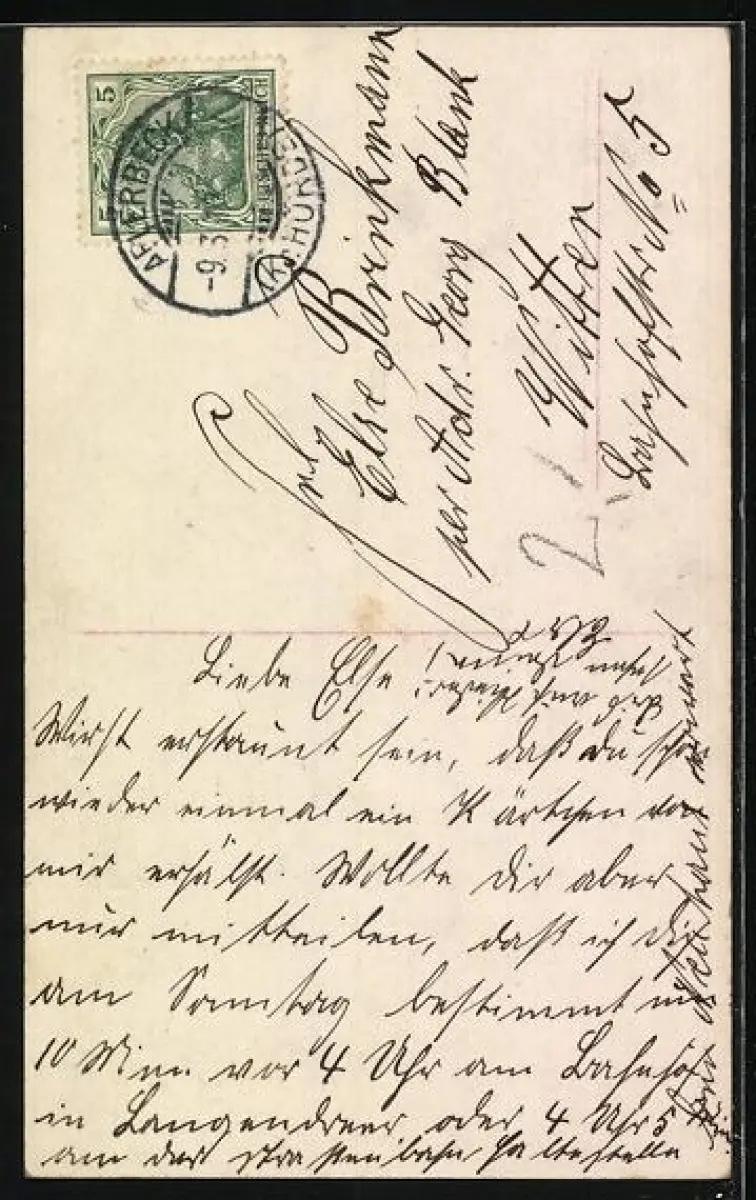 5
5
DEUTSCHES REICH
APLERBECK
-9.3
(Kr. HÖRDE)
Frl
Else Brinkmann
per Adr. Georg Blank
Witten
Bahnhofstr No 5
Liebe Else
Wirst erstaunt sein, daß du schon
wieder einmal ein Kärtchen von
mir erhälst. Wollte Dir aber
nur mitteilen, daß ich Dich
am Sonntag bestimmt um
10 Min. vor 4 Uhr am Bahnhof
in Langendreer oder 4 Uhr 5
am der Strassenbahn Haltestelle
erwart